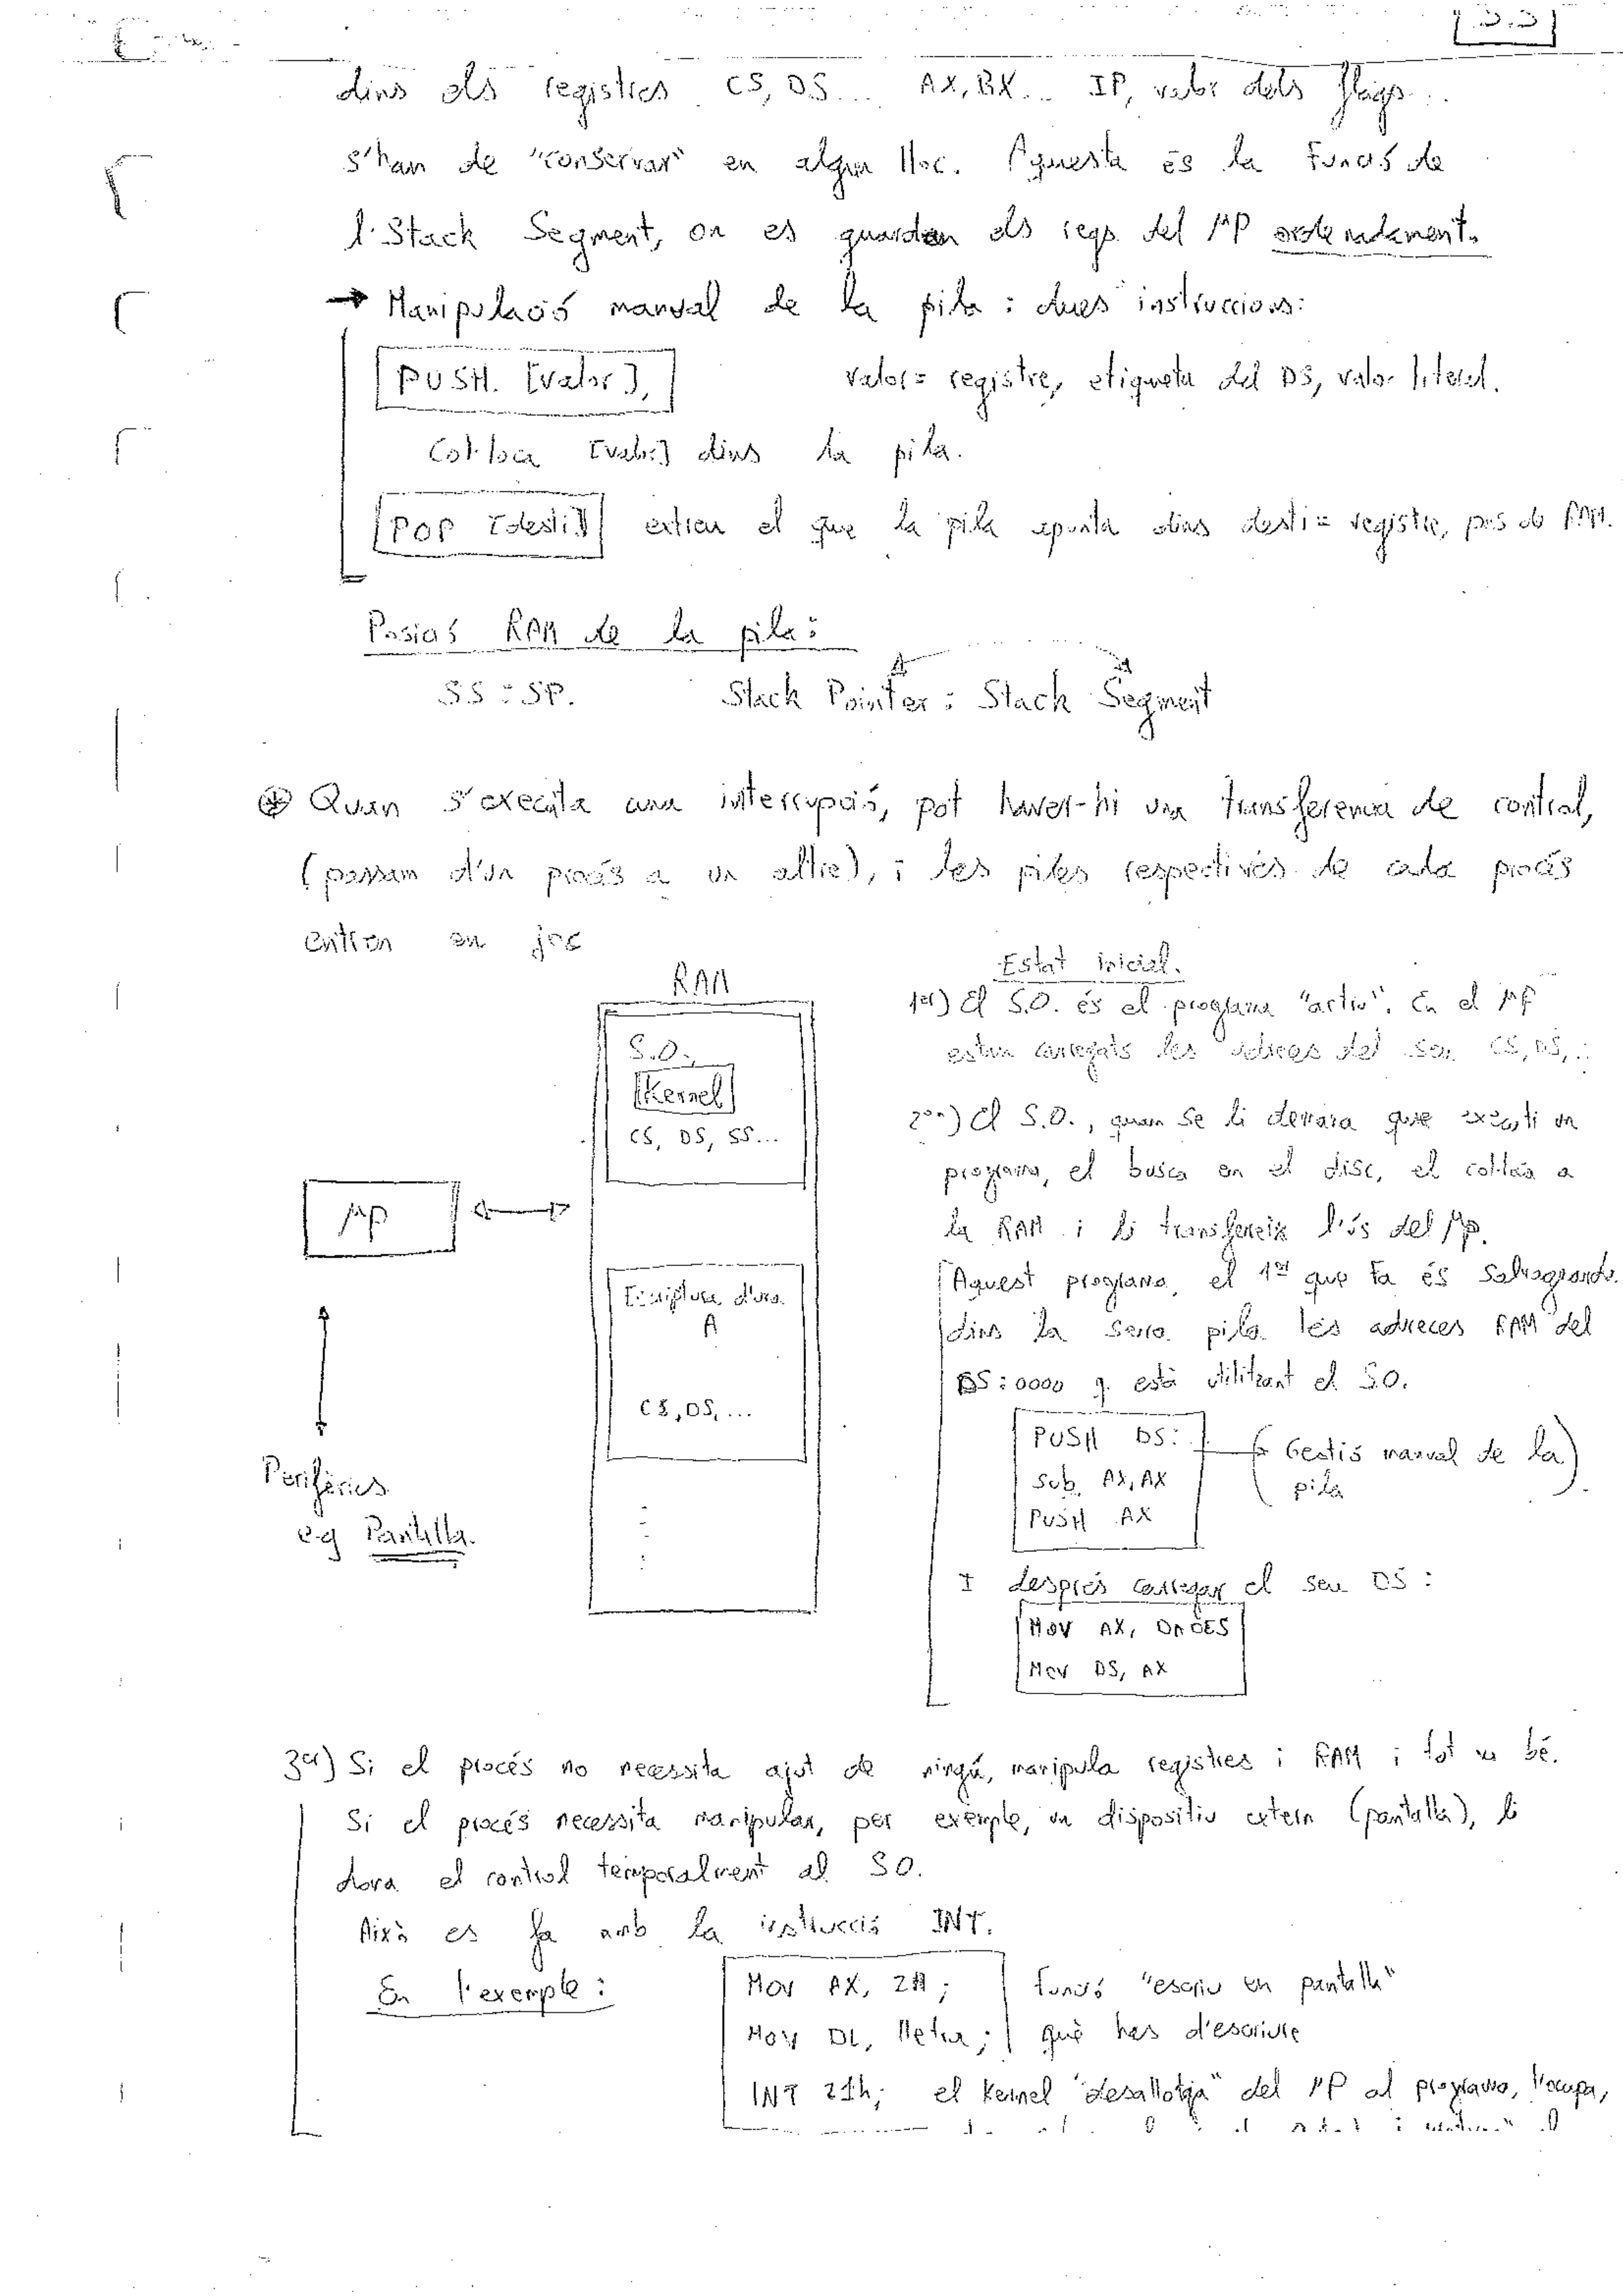 dins els registres CS, DS... AX, BX... IP, valor dels flags...
s'han de "conservar" en algun lloc. Aquesta és la funció de
l'Stack Segment, on es guarden els regs. del μP ordenadament.
→ Manipulació manual de la pila: dues instruccions:
PUSH [valor], valor = registre, etiqueta del DS, valor literal.
Col·loca [valor] dins la pila.
POP [destí] extreu el que la pila apunta dins destí = registre, pos de RAM.
Posició RAM de la pila:
SS:SP. Stack Pointer : Stack Segment
Quan s'executa una interrupció, pot haver-hi una transferència de control,
(passam d'un procés a un altre), i les piles respectives de cada procés
entren en joc
RAM
S.O.
Kernel
CS, DS, SS...
μP
Escriptura d'una
A
CS, DS, ...
Perifèrics
e.g Pantalla.
Estat inicial.
1er) El S.O. és el programa "actiu". En el μP
estan carregats les adreces del seu CS, DS, ..
2on) El S.O., quan se li demana que executi un
programa, el busca en el disc, el col·loca a
la RAM i li transfereix l'ús del μP.
Aquest programa, el 1er que fa és salvaguardar
dins la seva pila les adreces RAM del
DS:0000 q. està utilitzant el S.O.
PUSH DS:
Sub AX, AX
PUSH AX
(Gestió manual de la
pila)
I després carregar el seu DS:
MOV AX, DADES
MOV DS, AX
3er) Si el procés no necessita ajut de ningú, manipula registres i RAM i tot va bé.
Si el procés necessita manipular, per exemple, un dispositiu extern (pantalla), li
dona el control temporalment al SO.
Això es fa amb la instrucció INT.
En l'exemple:
MOV AX, 2H; funció "escriu en pantalla"
MOV DL, lletra; què has d'escriure
INT 21h; el Kernel "desallotja" del μP al programa, l'ocupa,